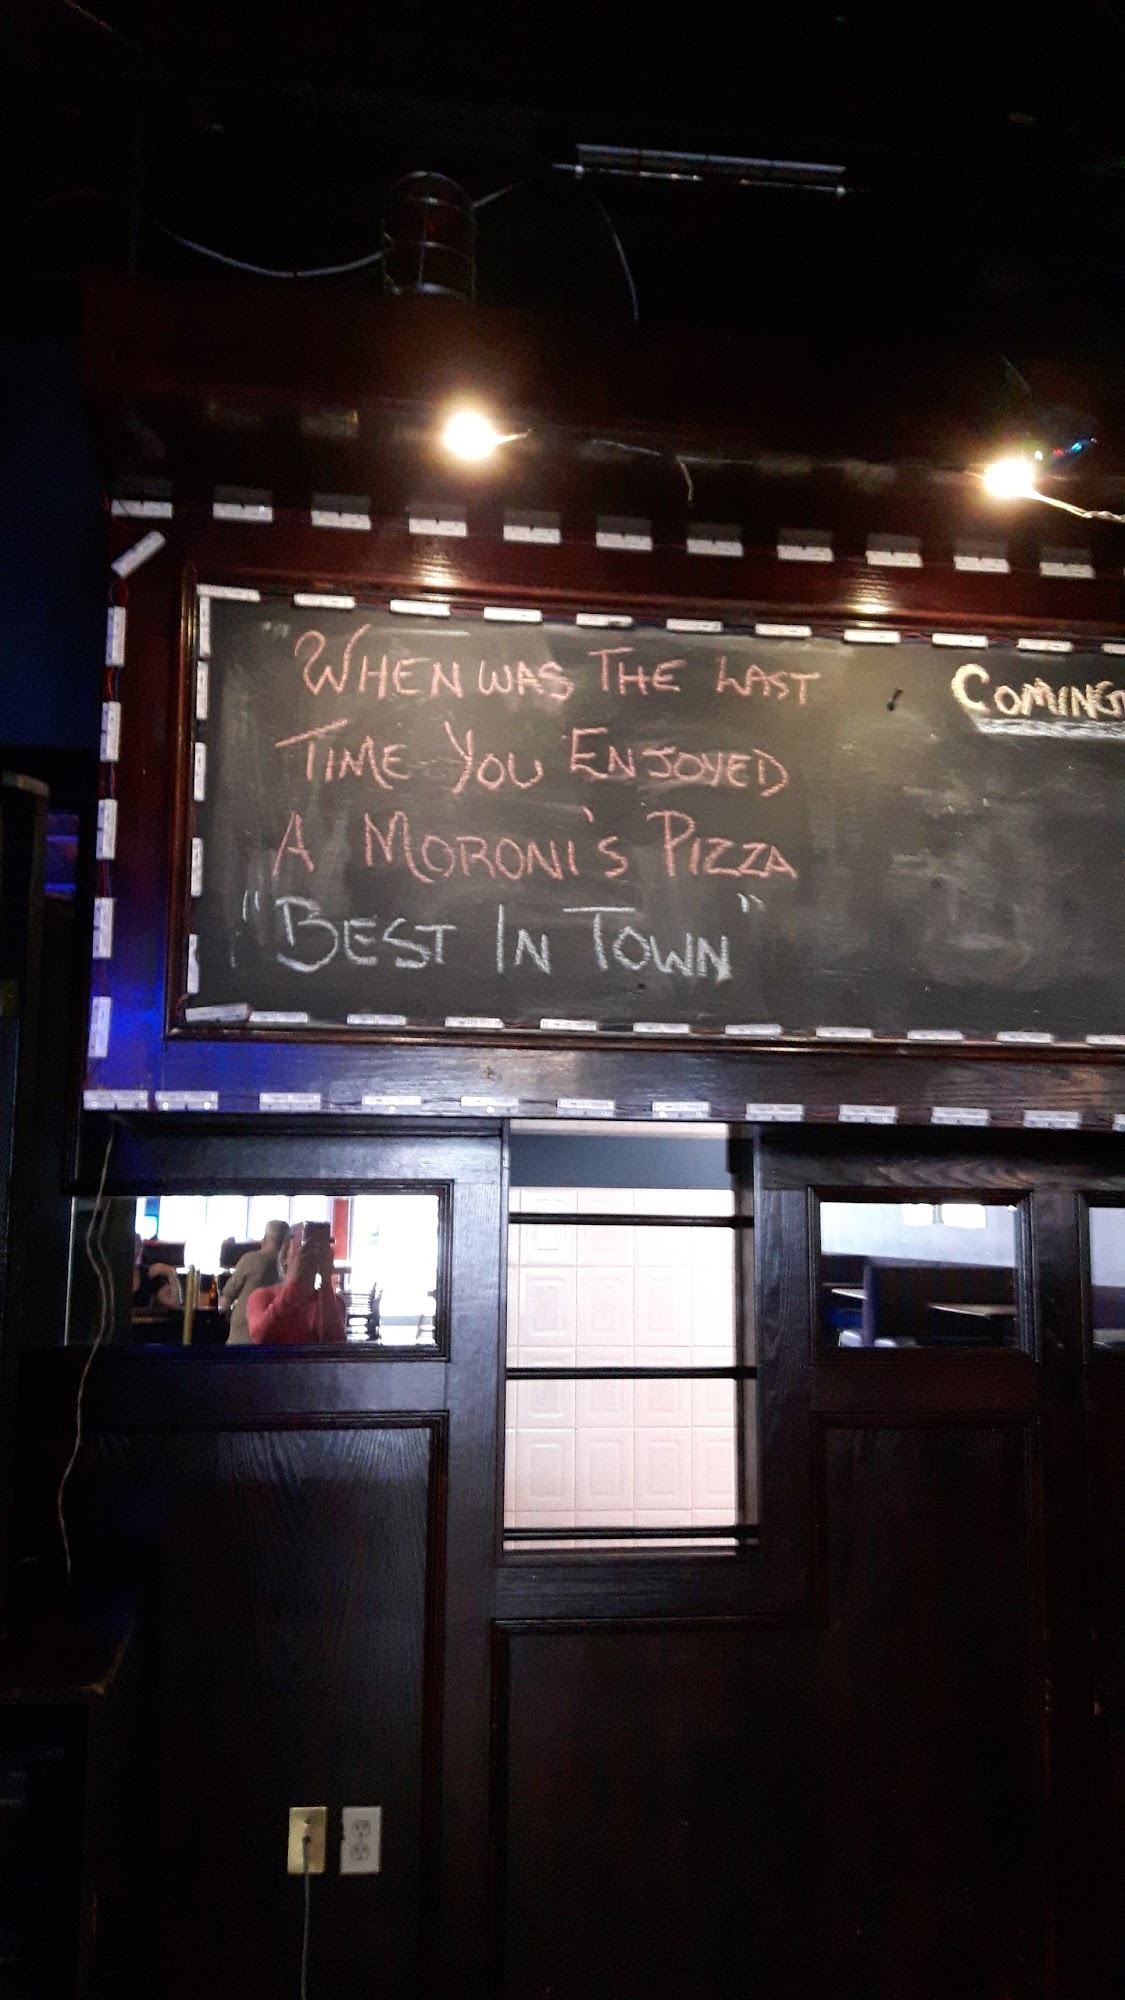 WHEN WAS THE LAST
TIME YOU ENJOYED
A MORONI'S PIZZA
"BEST IN TOWN"
COMING